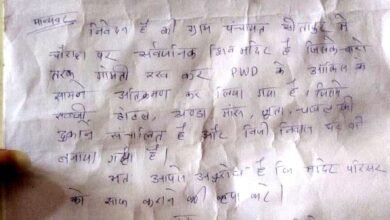 मान्यवर
निवेदन है की ग्राम पंचायत सीतापुर में
चौराहा पर सार्वजनिक शिव मंदिर है जिसके चारो
तरफ गोमती रख कर PWD के ऑफिस के
सामने अतिक्रमण कर लिया गया है, जिसमें
सब्जी होटल, अण्डा मांस, की
दुकान संचालित है और निजी निवास घर भी
बनाया गया है।
अतः आपसे अनुरोध है कि मंदिर परिसर
को साफ कराने की कृपा करें।